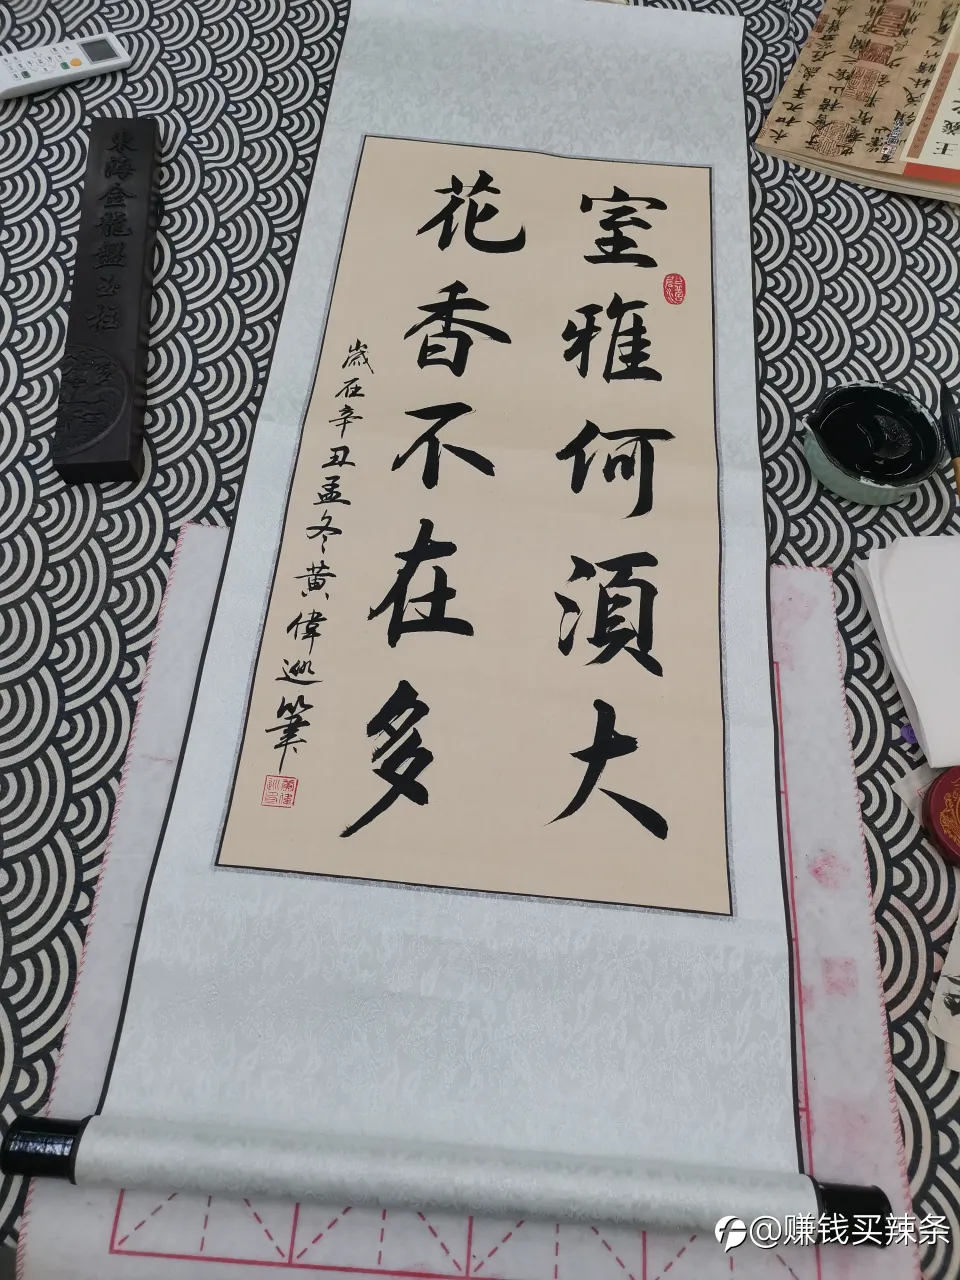 室雅何須大
花香不在多
歲在辛丑孟冬黃偉巡筆
東海金龍盤玉柱
王羲之
@赚钱买辣条